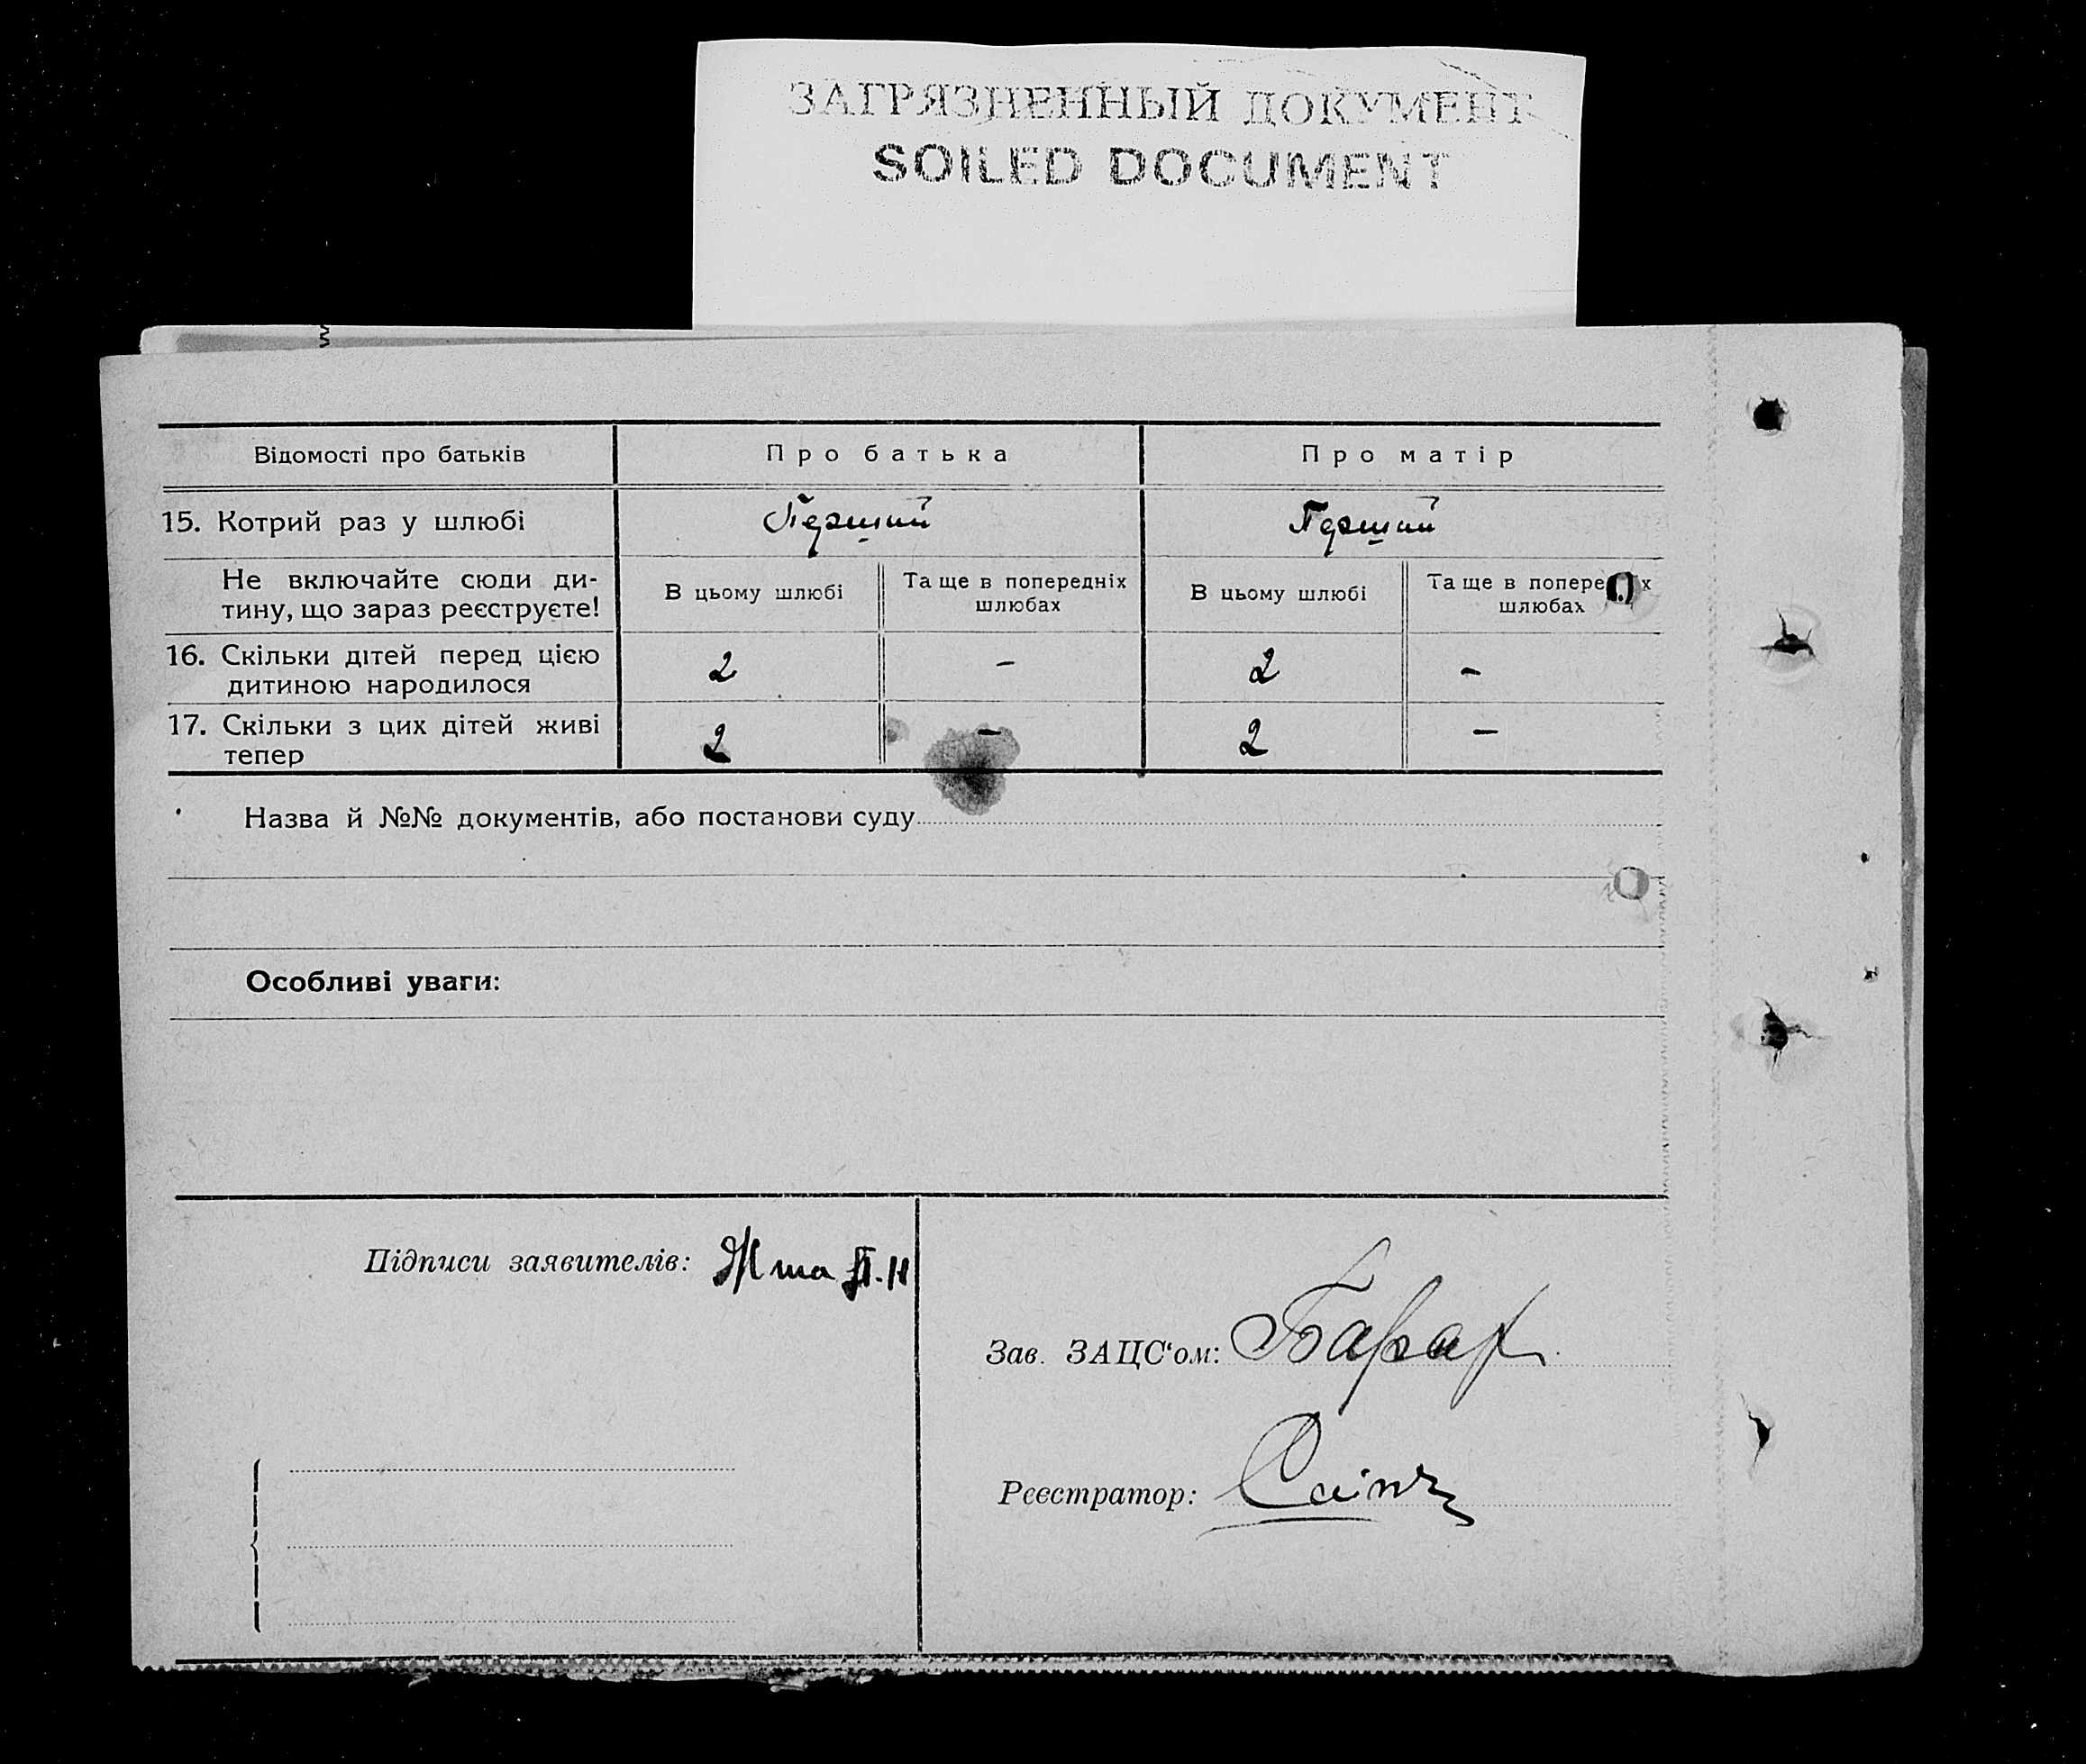 ЗАГРЯЗНЕННЫЙ ДОКУМЕНТ
SOILED DOCUMENT
Відомості про батьків
Про батька
Про матір
15. Котрий раз у шлюбі
Перший
Перший
Не включайте сюди ди-
тину, що зараз реєструєте!
В цьому шлюбі
Та ще в попередніх
шлюбах
В цьому шлюбі
Та ще в попере х
шлюбах
16. Скільки дітей перед цією
дитиною народилося
2
–
2
–
17. Скільки з цих дітей живі
тепер
2
–
2
–
Назва й №№ документів, або постанови суду
Особливі уваги:
Підписи заявителів:
Зав. ЗАЦС‘ом:
Реєстратор: